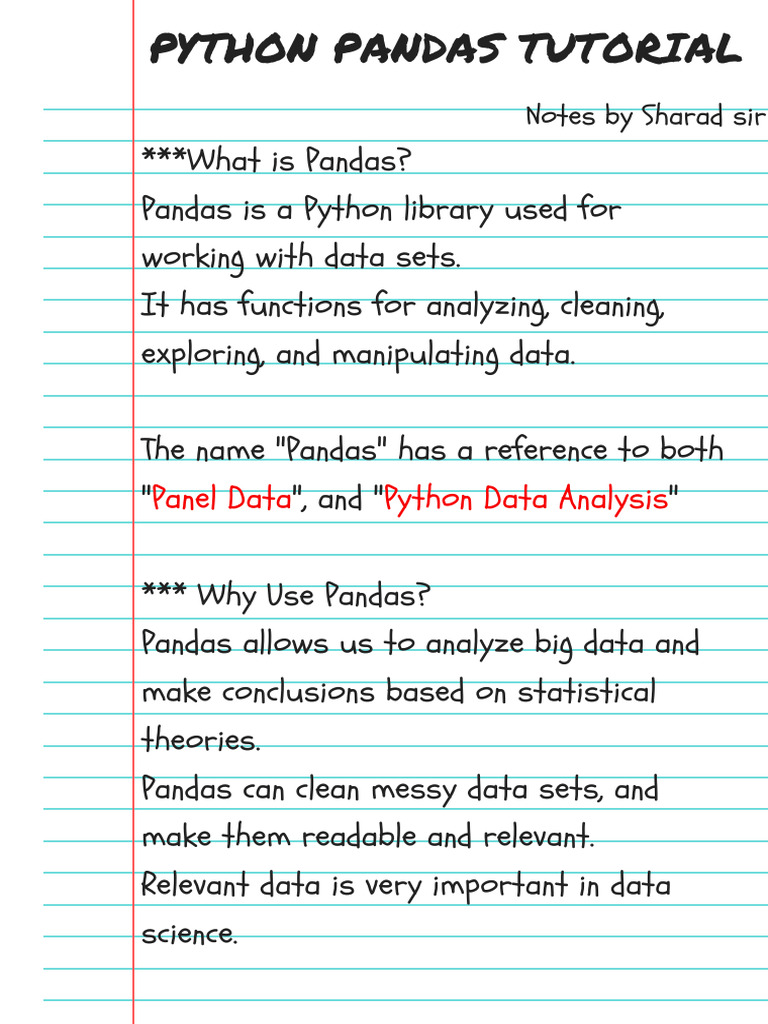 PYTHON PANDAS TUTORIAL
Notes by Sharad sir
***What is Pandas?
Pandas is a Python library used for
working with data sets.
It has functions for analyzing, cleaning,
exploring, and manipulating data.
The name "Pandas" has a reference to both
"Panel Data", and "Python Data Analysis"
*** Why Use Pandas?
Pandas allows us to analyze big data and
make conclusions based on statistical
theories.
Pandas can clean messy data sets, and
make them readable and relevant.
Relevant data is very important in data
science.